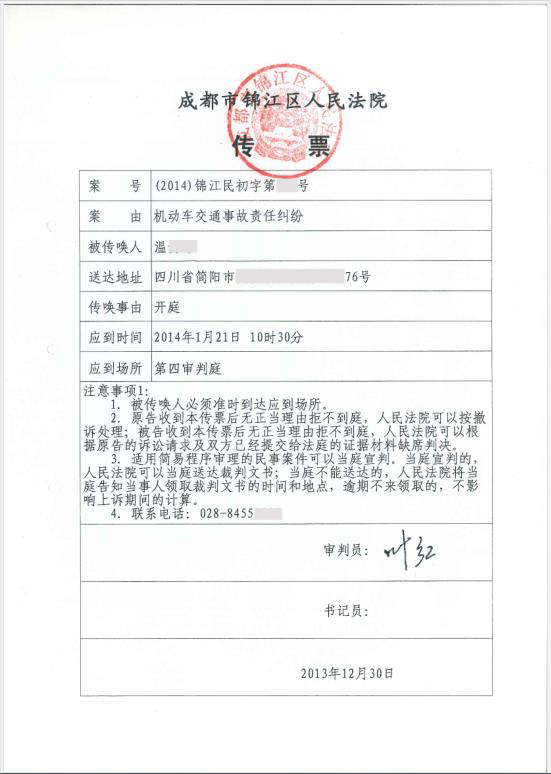 成都市锦江区人民法院
传 票
案 号 (2014)锦江民初字第 号
案 由 机动车交通事故责任纠纷
被传唤人 温
送达地址 四川省简阳市 76号
传唤事由 开庭
应到时间 2014年1月21日 10时30分
应到场所 第四审判庭
注意事项1:
1. 被传唤人必须准时到达应到场所。
2. 原告收到本传票后无正当理由拒不到庭，人民法院可以按撤
诉处理；被告收到本传票后无正当理由拒不到庭，人民法院可以根
据原告的诉讼请求及双方已经提交给法庭的证据材料缺席判决。
3. 适用简易程序审理的民事案件可以当庭宣判。当庭宣判的，
人民法院可以当庭送达裁判文书；当庭不能送达的，人民法院将当
庭告知当事人领取裁判文书的时间和地点，逾期不来领取的，不影
响上诉期间的计算。
4. 联系电话: 028-8455
审判员: 叶红
书记员:
2013年12月30日